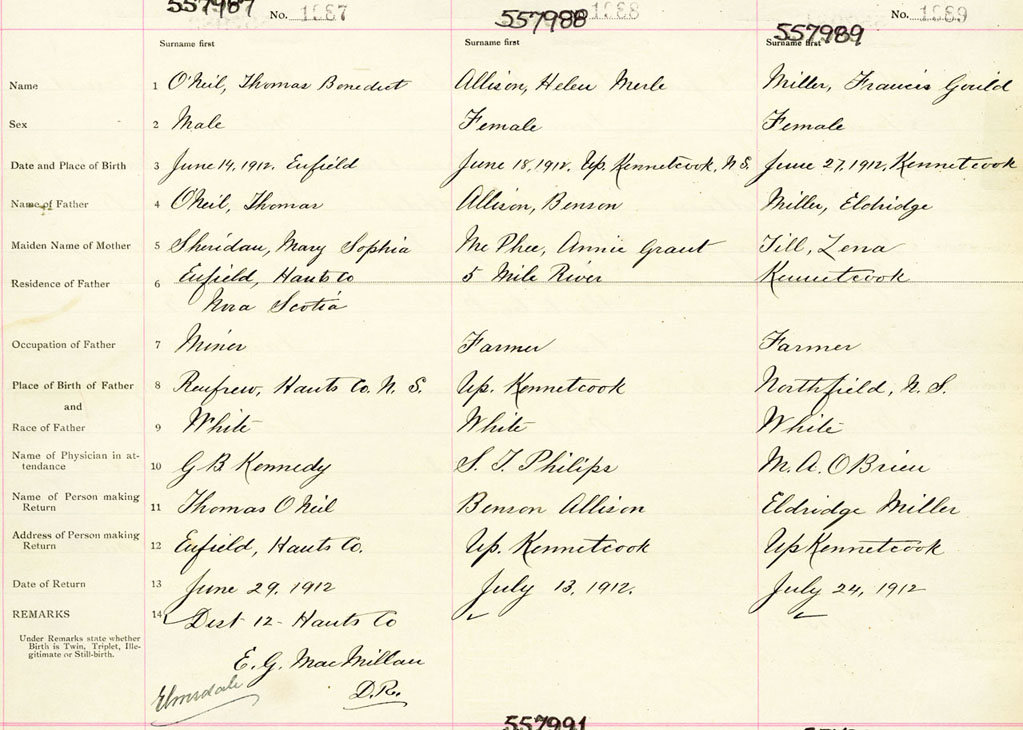 557987 No. 1887 557988 1888 557989 No. 1889
Surname first Surname first Surname first
Name 1 O'Neil, Thomas Benedict Allison, Helen Merle Miller, Francis Gould
Sex 2 Male Female Female
Date and Place of Birth 3 June 14, 1912. Enfield June 18, 1912. Up. Kennetcook, N S. June 27, 1912, Kennetcook
Name of Father 4 O'Neil, Thomas Allison, Benson Miller, Eldridge
Maiden Name of Mother 5 Sheridan, Mary Sophia Mc Phee, Annie Grant Till, Lena
Residence of Father 6 Enfield, Hants Co 5 Mile River Kennetcook
Nova Scotia
Occupation of Father 7 Miner Farmer Farmer
Place of Birth of Father 8 Renfrew, Hants Co. N. S. Up. Kennetcook Northfield, N. S.
and
Race of Father 9 White White White
Name of Physician in at-
tendance 10 G B Kennedy S. T. Philips M. A. O Brien
Name of Person making
Return 11 Thomas O Neil Benson Allison Eldridge Miller
Address of Person making
Return 12 Enfield, Hants Co. Up. Kennetcook Up Kennetcook
Date of Return 13 June 29, 1912 July 13, 1912. July 24, 1912
REMARKS 14 Dist 12 - Hants Co
Under Remarks state whether
Birth is Twin, Triplet, Ille-
gitimate or Still-birth.
E. G. MacMillan
Elmsdale D.R.
557991